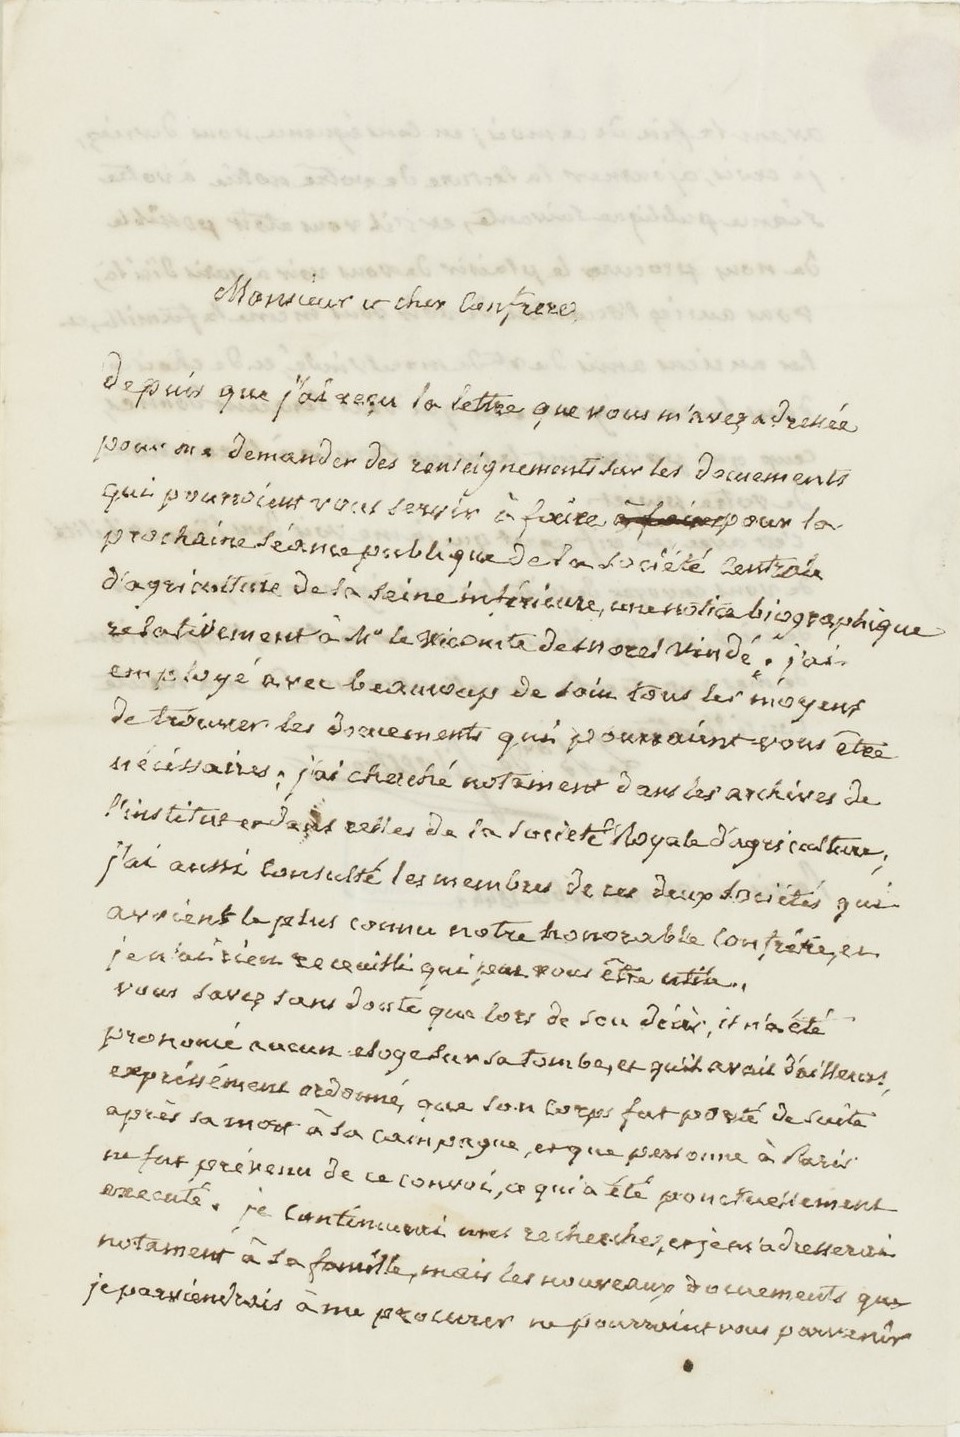 Monsieur et cher Confrere,
Depuis que j'ai reçu la lettre que vous m'avez adressée
pour me demander des renseignements sur les documents
qui pourroient vous servir à faire à faire pour la
prochaine séance publique de la société Centrale
d'agriculture de la seine inférieure, une notice biographique
relativement à Mr le Vicomte de Morel Vindé, j'ai
employé avec beaucoup de soin tous les moyens
de trouver les documents qui pourraient vous être
nécessaires ; j'ai cherché notament dans les archives de
l'institut et dans celles de la société Royale d'agriculture ;
j'ai aussi Consulté les membres de ces deux sociétés qui
avoient le plus connu notre honorable Confrère, et
je n'ai rien recueilli qui peut vous être utile.
vous savez sans doute que lors de son décès, il n'a été
prononcé aucun eloge sur sa tombe, et qu'il avait d'ailleurs
expressément ordonné, que son Corps fut porté de suite
après sa mort à sa campagne, et que personne à Paris
ne fut prévenu de ce convoi, ce qui a été ponctuellement
executé. je Continuerai mes recherches, et je m'adresserai
notament à sa famille, mais les nouveaux documents que
je parviendrais à me procurer ne pourroient vous parvenir